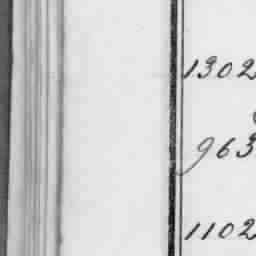 1302
963
1102